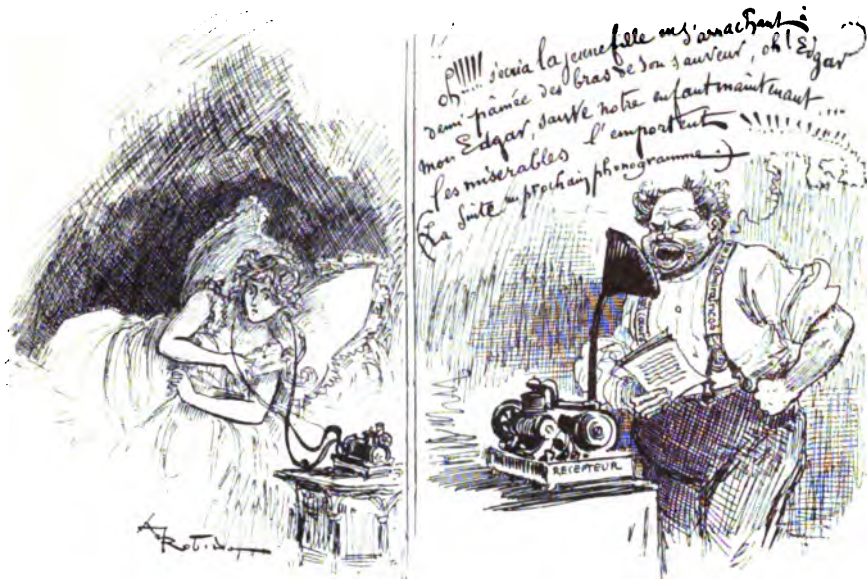 oh!!!!! s'écria la jeune fille en s'arrachant à
demi pâmée des bras de son sauveur, oh! Edgar
mon Edgar, sauve notre enfant maintenant
les misérables l'emportent !!!!!!!!
(La suite au prochain phonogramme.)
RECEPTEUR
A Robida